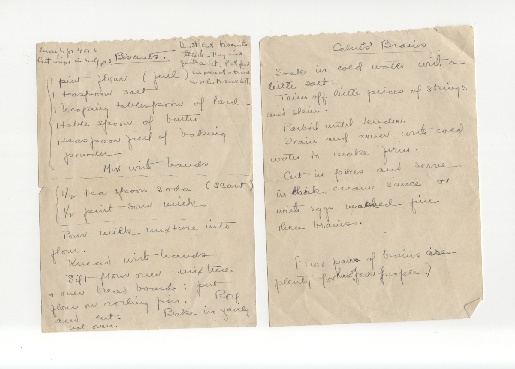 Biscuits.
1 pint flour (full)
1 teaspoon salt
1 heaping tablespoon of lard
1 table spoon of butter
1 teaspoon full of baking
powder
Mix with hands
1/2 tea spoon soda (scant)
1/2 pint sour milk
Pour milk mixture into
flour.
Knead with hands
Sift flour over mixture
+ over bread board; put
flour on rolling pin. Roll
and cut. Bake in
hot oven.
Calves Brains
Soak in cold water with a
little salt.
Trim off little pieces of strings
and skin.
Parboil until tender.
Drain and cover with cold
water to make firm.
Cut in pieces and serve
in thick cream sauce or
with eggs mashed fine
like brains.
pair of brains is
plenty for four people)